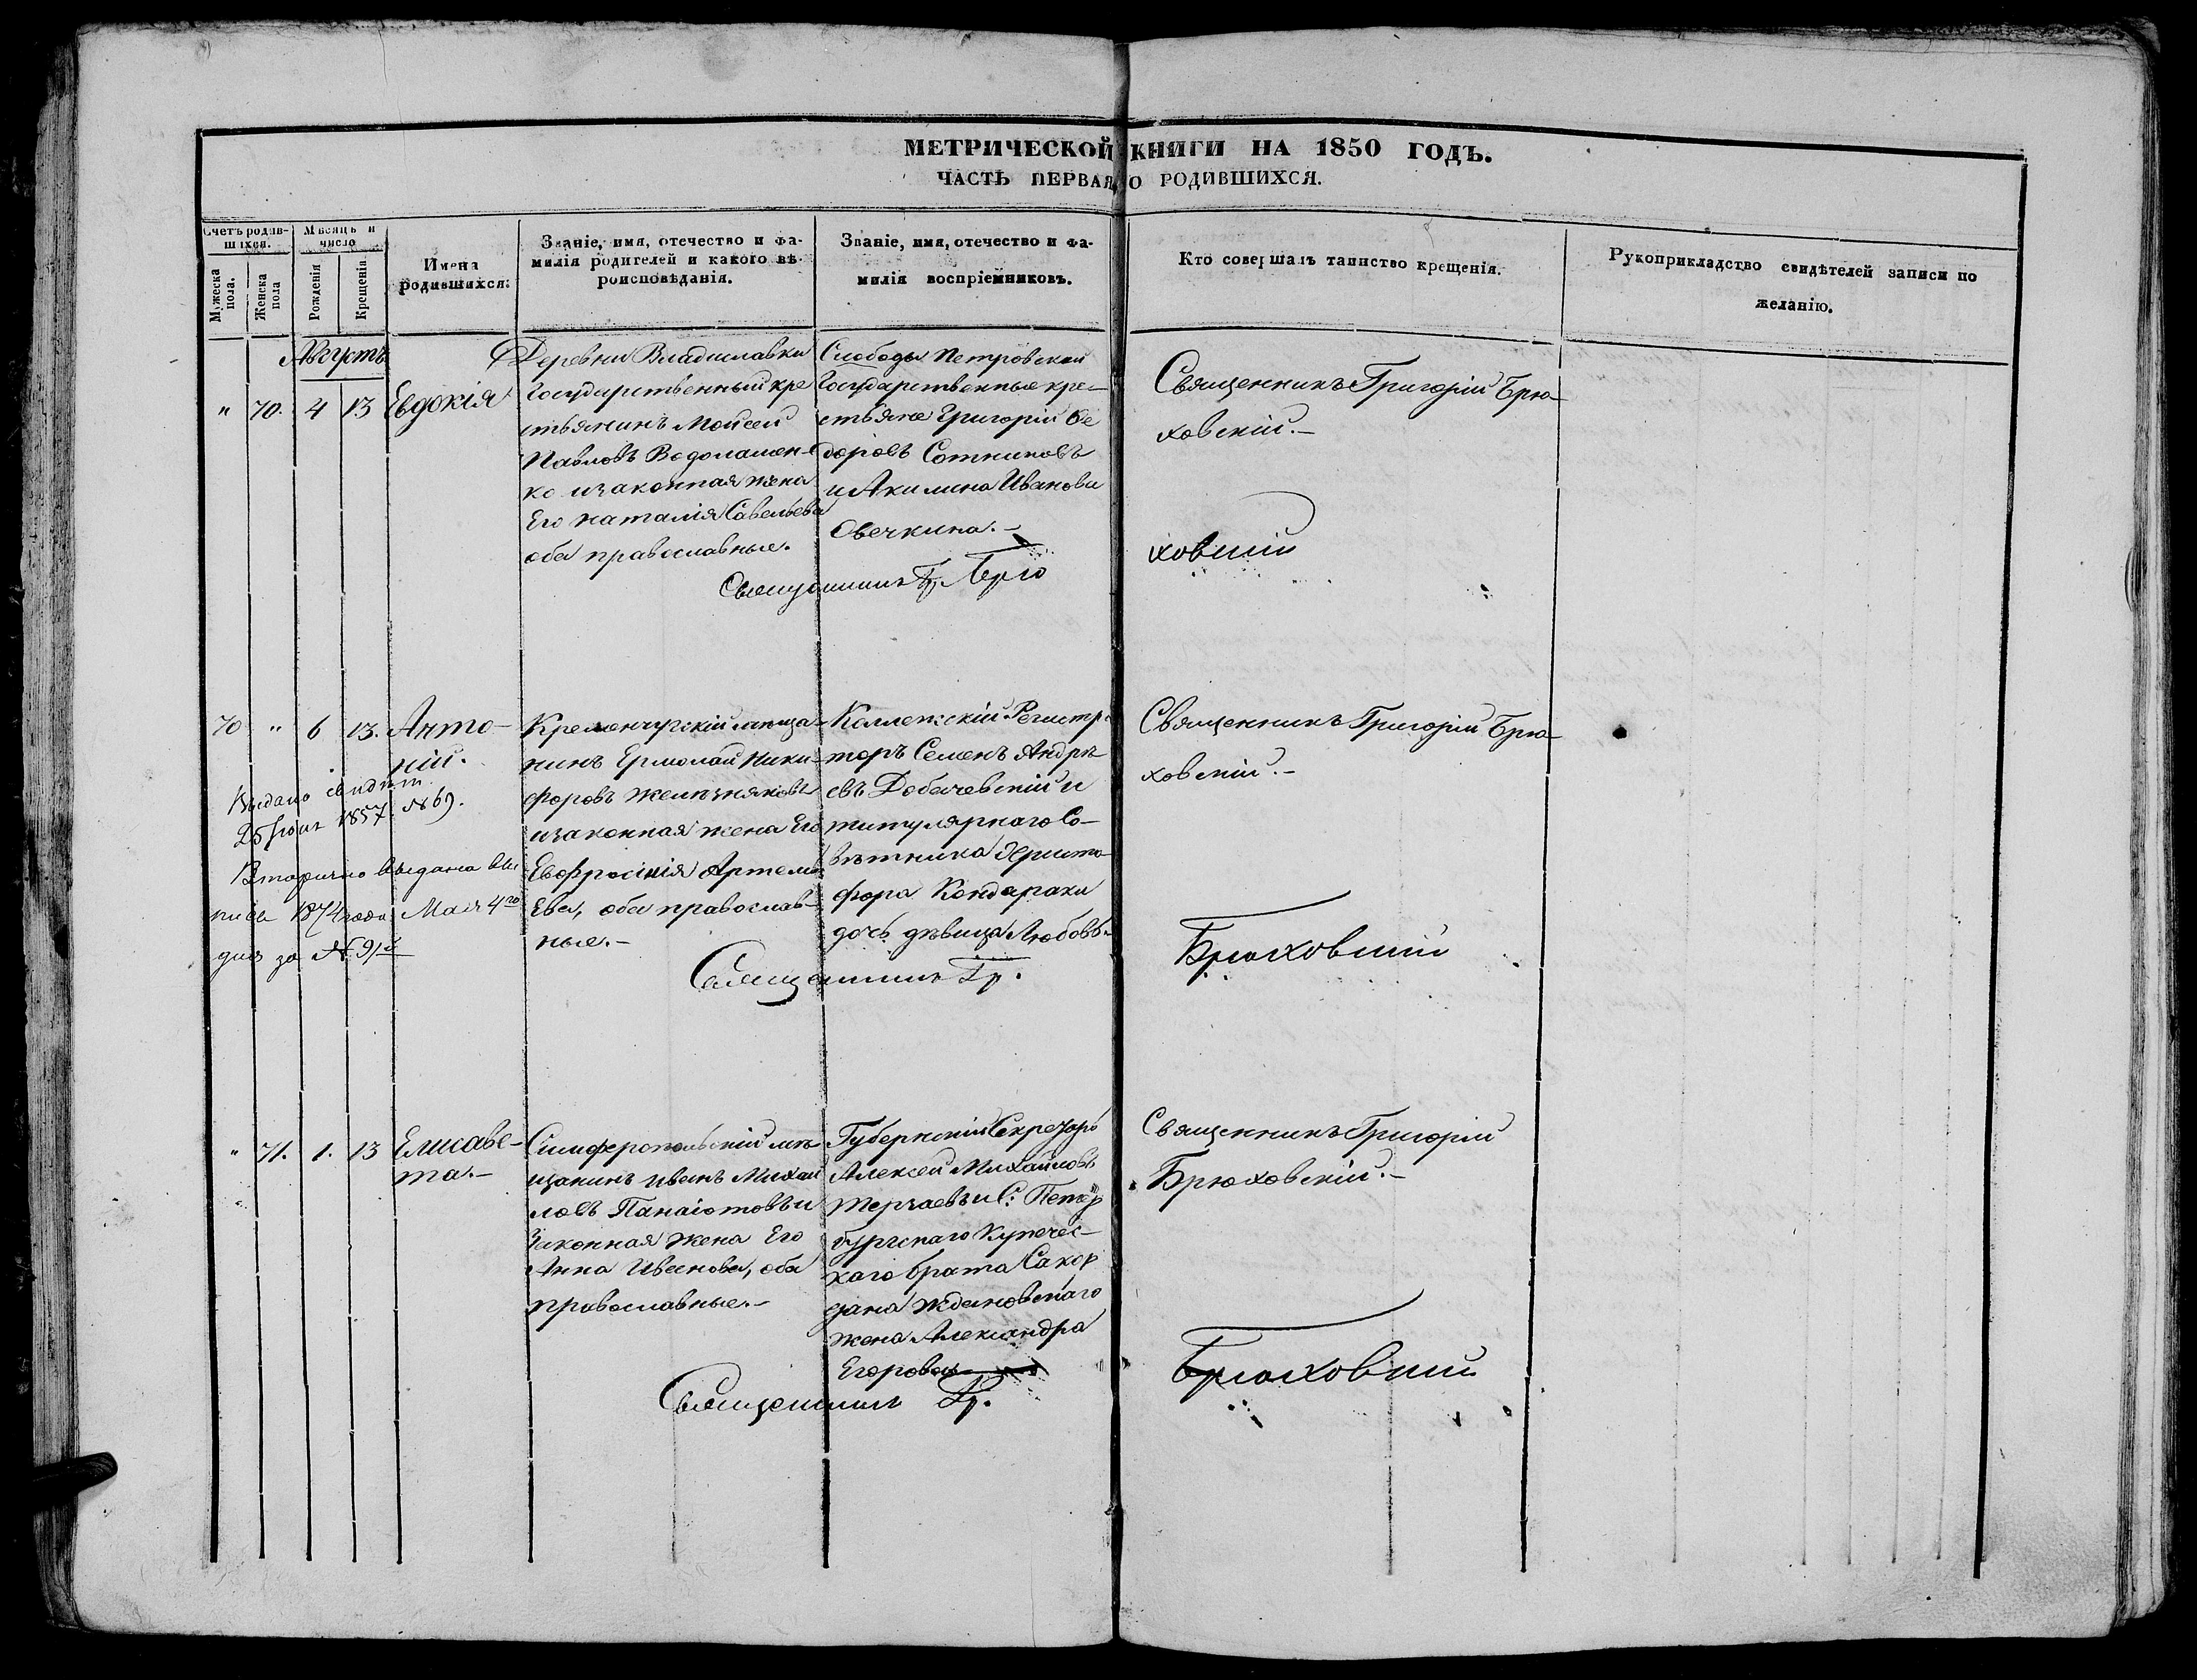 МЕТРИЧЕСКОЙ КНИГИ НА 1850 ГОДЪ.
ЧАСТЬ ПЕРВАЯ, О РОДИВШИХСЯ.
Счетъ родив-
шихся.
Мѣсяцъ и
число
Мужеска
пола.
Женска
пола
Рожденія
Крещенія
Имена
родившихся.
Званіе, имя, отечество и фа-
милія родителей и какого вѣ-
роисповѣданія.
Званіе, имя, отечество и фа-
милія воспріемниковъ.
Кто совершалъ таинство крещенія.
Рукоприкладство свидѣтелей записи по
желанію.
Августъ
" 70. 4 13 Евдокія
Деревни Владиславки
Государственный кре
стьянинъ Мойсей
Павловъ Водолажен-
ко и законная жена
Его Наталія Савельева
оба православные.
Слободы Петровской
Государственные кре-
стьяне Григорій Ѳе
доровъ Сотниковъ
и Акилина Иванова
Овечкина.-
Священникъ Григорій Брю-
ховскій.-
Священникъ Гр. Брю
ховскій
70 " 6 13. Анто-
ній.
Выдано свидѣт.
25 1857. №69.
Вторично выдана вы
пись 1874 года Мая 4го
дня за № 91й
Кременчугскій мѣща-
нинъ Ермолай Ники-
форовъ Желѣзняковъ
и законная жена Его
Евфросинія Артемь
Ева, оба православ-
ные.-
Коллежскій Регистра
торъ Семенъ Андрѣ
евъ Добачевскій и
титулярнаго Со-
вѣтника Христо-
фора Кондараки
дочь дѣвица Любовь.
Священникъ Григорій Брю-
ховскій.-
Священникъ Гр.
Брюховскій
" 71. 1. 13 Елисаве-
та.-
Симферопольскій мѣ
щанинъ Иванъ Михай
ловъ Панаіотовъ и
Законная жена Его
Анна Иванова, оба
православные.-
Губернскій Секретарь
Алексей Михайловъ
и С: Петер
бургскаго Купечес-
каго брата
Ждановскаго
жена Александра
Егорова
Священникъ Григорій
Брюховскій.-
Священникъ Гр.
Брюховскій